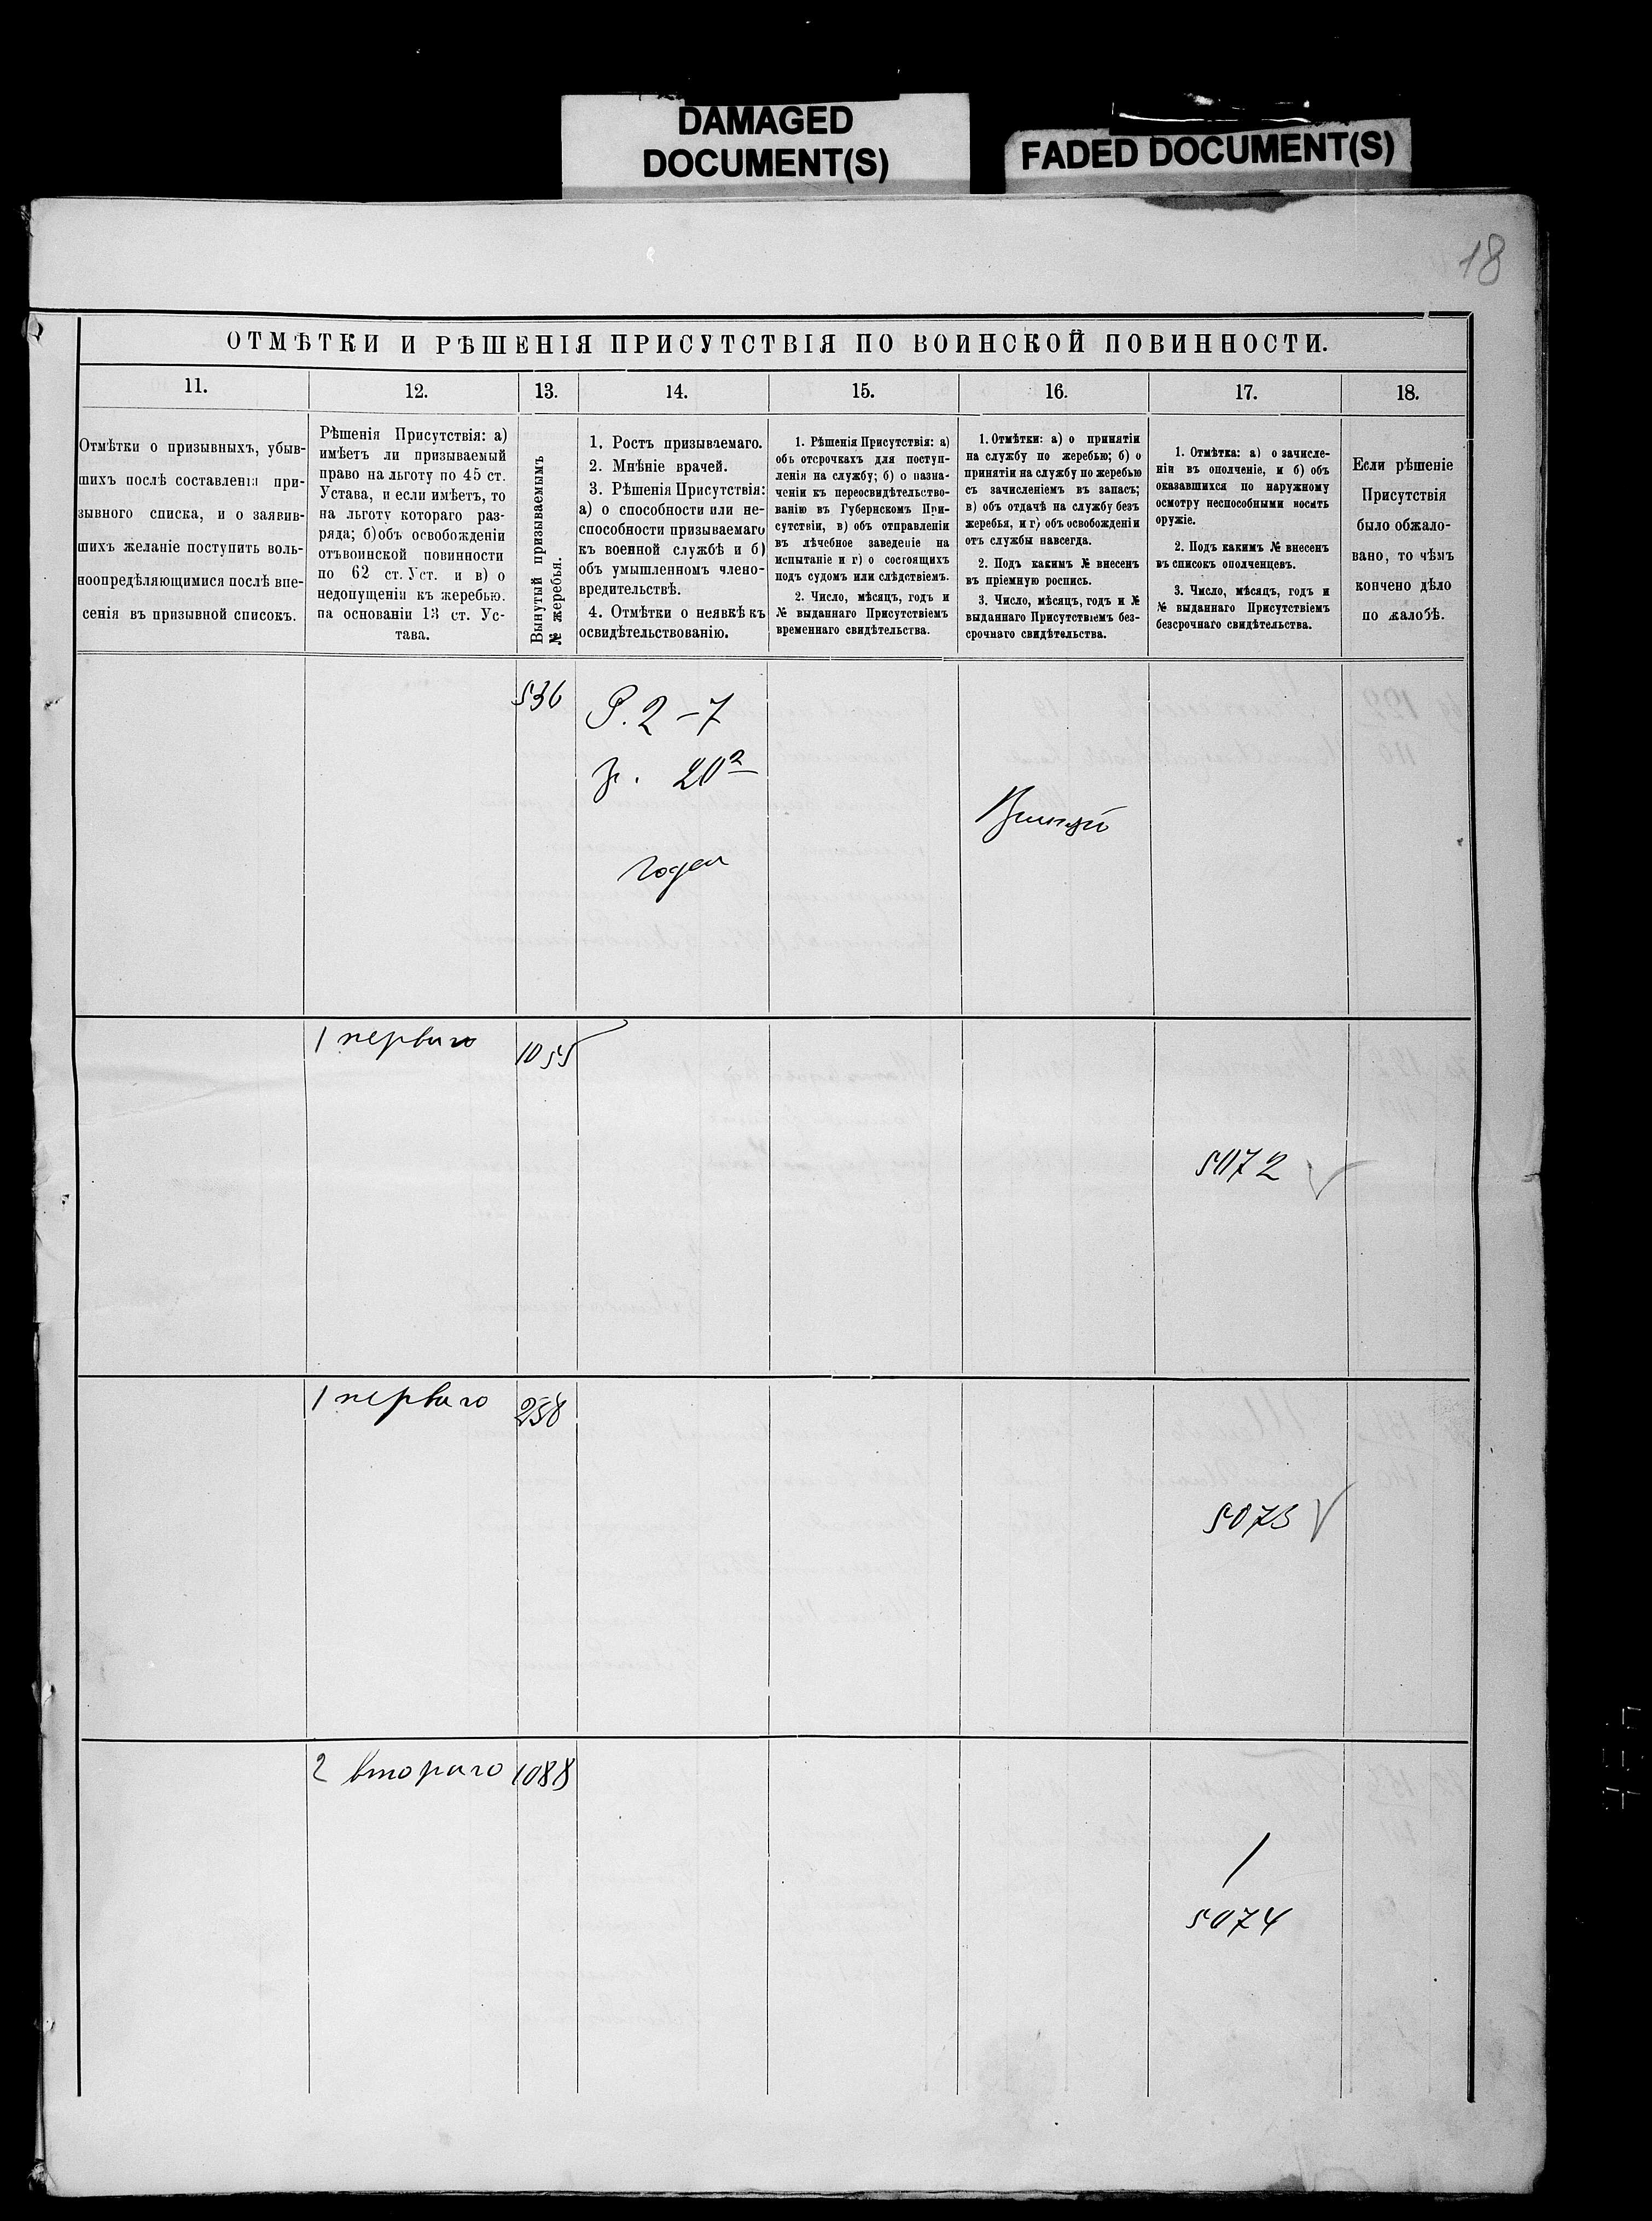 DAMAGED
DOCUMENT(S)
FADED DOCUMENT(S)
18
ОТМѢТКИ И РѢШЕНІЯ ПРИСУТСТВІЯ ПО ВОИНСКОЙ ПОВИННОСТИ.
11.
Отмѣтки о призывныхъ, убыв-
шихъ послѣ составленія при-
зывного списка, и о заявив-
шихъ желаніе поступить воль-
ноопредѣляющимися послѣ вне-
сенія въ призывной списокъ.
12.
Рѣшенія Присутствія: а)
имѣетъ ли призываемый
право на льготу по 45 ст.
Устава, и если имѣетъ, то
на льготу котораго раз-
ряда; б) объ освобожденіи
отъ воинской повинности
по 62 ст. Уст. и в) о
недопущеніи къ жеребью.
на основаніи 13 ст. Ус-
тава.
13.
Вынутый призываемымъ
№ жеребья.
14.
1. Ростъ призываемаго.
2. Мнѣніе врачей.
3. Рѣшенія Присутствія:
а) о способности или не-
способности призываемаго
къ военной службѣ и б)
объ умышленномъ члено-
вредительствѣ.
4. Отмѣтки о неявкѣ къ
освидѣтельствованію.
15.
1. Рѣшенія Присутствія: а)
объ отсрочкахъ для поступ-
ленія на службу; б) о назна-
ченіи къ переосвидѣтельство-
ванію въ Губернскомъ При-
сутствіи, в) объ отправленіи
въ лѣчебное заведеніе на
испытаніе и г) о состоящихъ
подъ судомъ или слѣдствіемъ.
2. Число, мѣсяцъ, годъ и
№ выданнаго Присутствіемъ
временнаго свидѣтельства.
16.
1. Отмѣтки: а) о принятіи
на службу по жеребью; б) о
принятіи на службу по жеребью
съ зачисленіемъ въ запасъ;
в) объ отдачѣ на службу безъ
жеребья, и г) объ освобожденіи
отъ службы навсегда.
2. Подъ какимъ № внесенъ
въ пріемную роспись.
3. Число, мѣсяцъ, годъ и №
выданнаго Присутствіемъ без-
срочнаго свидѣтельства.
17.
1. Отмѣтка: а) о зачисле-
ніи въ ополченіе, и б) объ
оказавшихся по наружному
осмотру неспособными носить
оружіе.
2. Подъ какимъ № внесенъ
въ списокъ ополченцевъ.
3. Число, мѣсяцъ, годъ и
№ выданнаго Присутствіемъ
безсрочнаго свидѣтельства.
18.
Если рѣшеніе
Присутствія
было обжало-
вано, то чѣмъ
кончено дѣло
по жалобѣ.
536
Р. 2 - 7
г. 20 2
Годен
1 перваго
1055
5072
1 перваго
258
5073
2 втораго
1088
5074